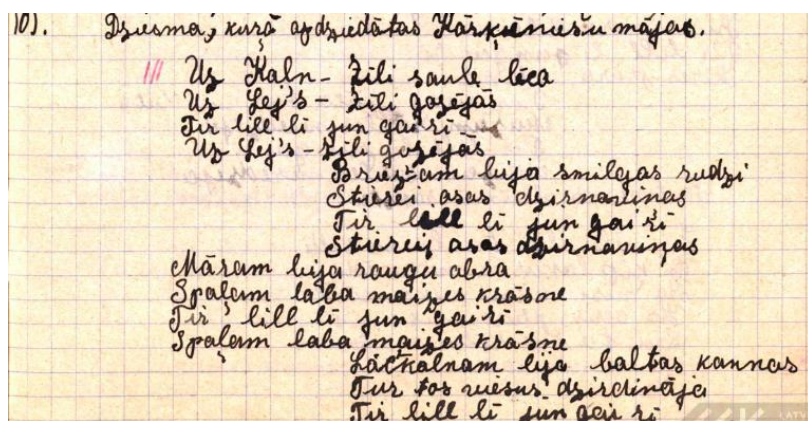 10). Dziesma, kurā apdziedātas Kārķēniešu mājas.
Uz Kaln- Žīli saule lēca
Uz Lej's - žīli gozējās
Tir lill lī jun gai rī -
Uz Lej's - žīli gozējās
Briežam bija smilgas rudzi
Stierei asas dzirnaviņas
Tir lill lī jun gai rī
Stiereij asas dzirnaviņas
Māram bija raugu abra
Spaļam laba maizes krāsne
Tir lill lī jun gai rī
Spaļam laba maizes krāsne
Lāčkalnam bija baltas kannas
Tur tos viesus dzirdināja
Tir lill lī jun gai rī
LATV